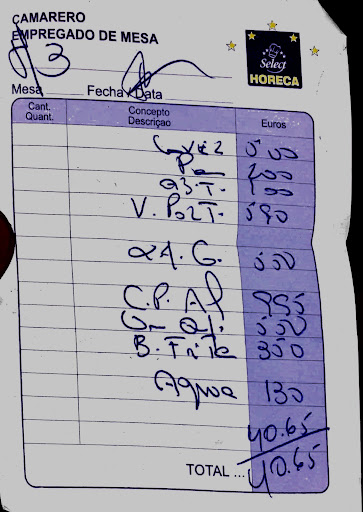 CAMARERO
EMPREGADO DE MESA
Select
HORECA
Mesa Fecha / Data
Cant. Quant. Concepto Descriçao Euros
500
200
100
V. PorT. 590
2A. G. 550
C. P. Al 995
550
B. Frita 350
Agua 130
40.65
TOTAL ... 40.65